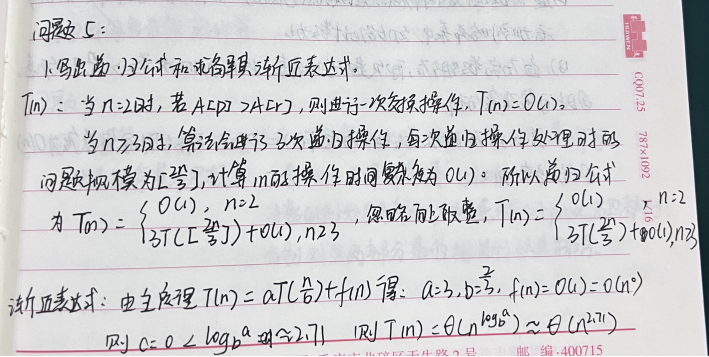 问题5:
1.写出递归公式和求解其渐近表达式。
T(n): 当n=2时,若A[p]>A[r],则进行一次交换操作,T(n)=O(1)。
当n≥3时,算法会进行3次递归操作,每次递归操作处理时的
问题规模为⌈2n/3⌉,计算m的操作时间复杂度为O(1)。所以递归公式
为T(n)={O(1), n=2 3T(⌈2n/3⌉)+O(1), n≥3 ,忽略向上取整,T(n)={O(1) , n=2 3T(2n/3)+O(1), n≥3
渐近表达式: 由主定理T(n)=aT(n/b)+f(n)得: a=3, b=3/2, f(n)=O(1)=O(n⁰)
则 c=0<log_b a ≈2.71 则T(n)=θ(n^{log_b a})≈θ(n^{2.71})
CQ07-25 787×1092 1/16
邮 编·400715